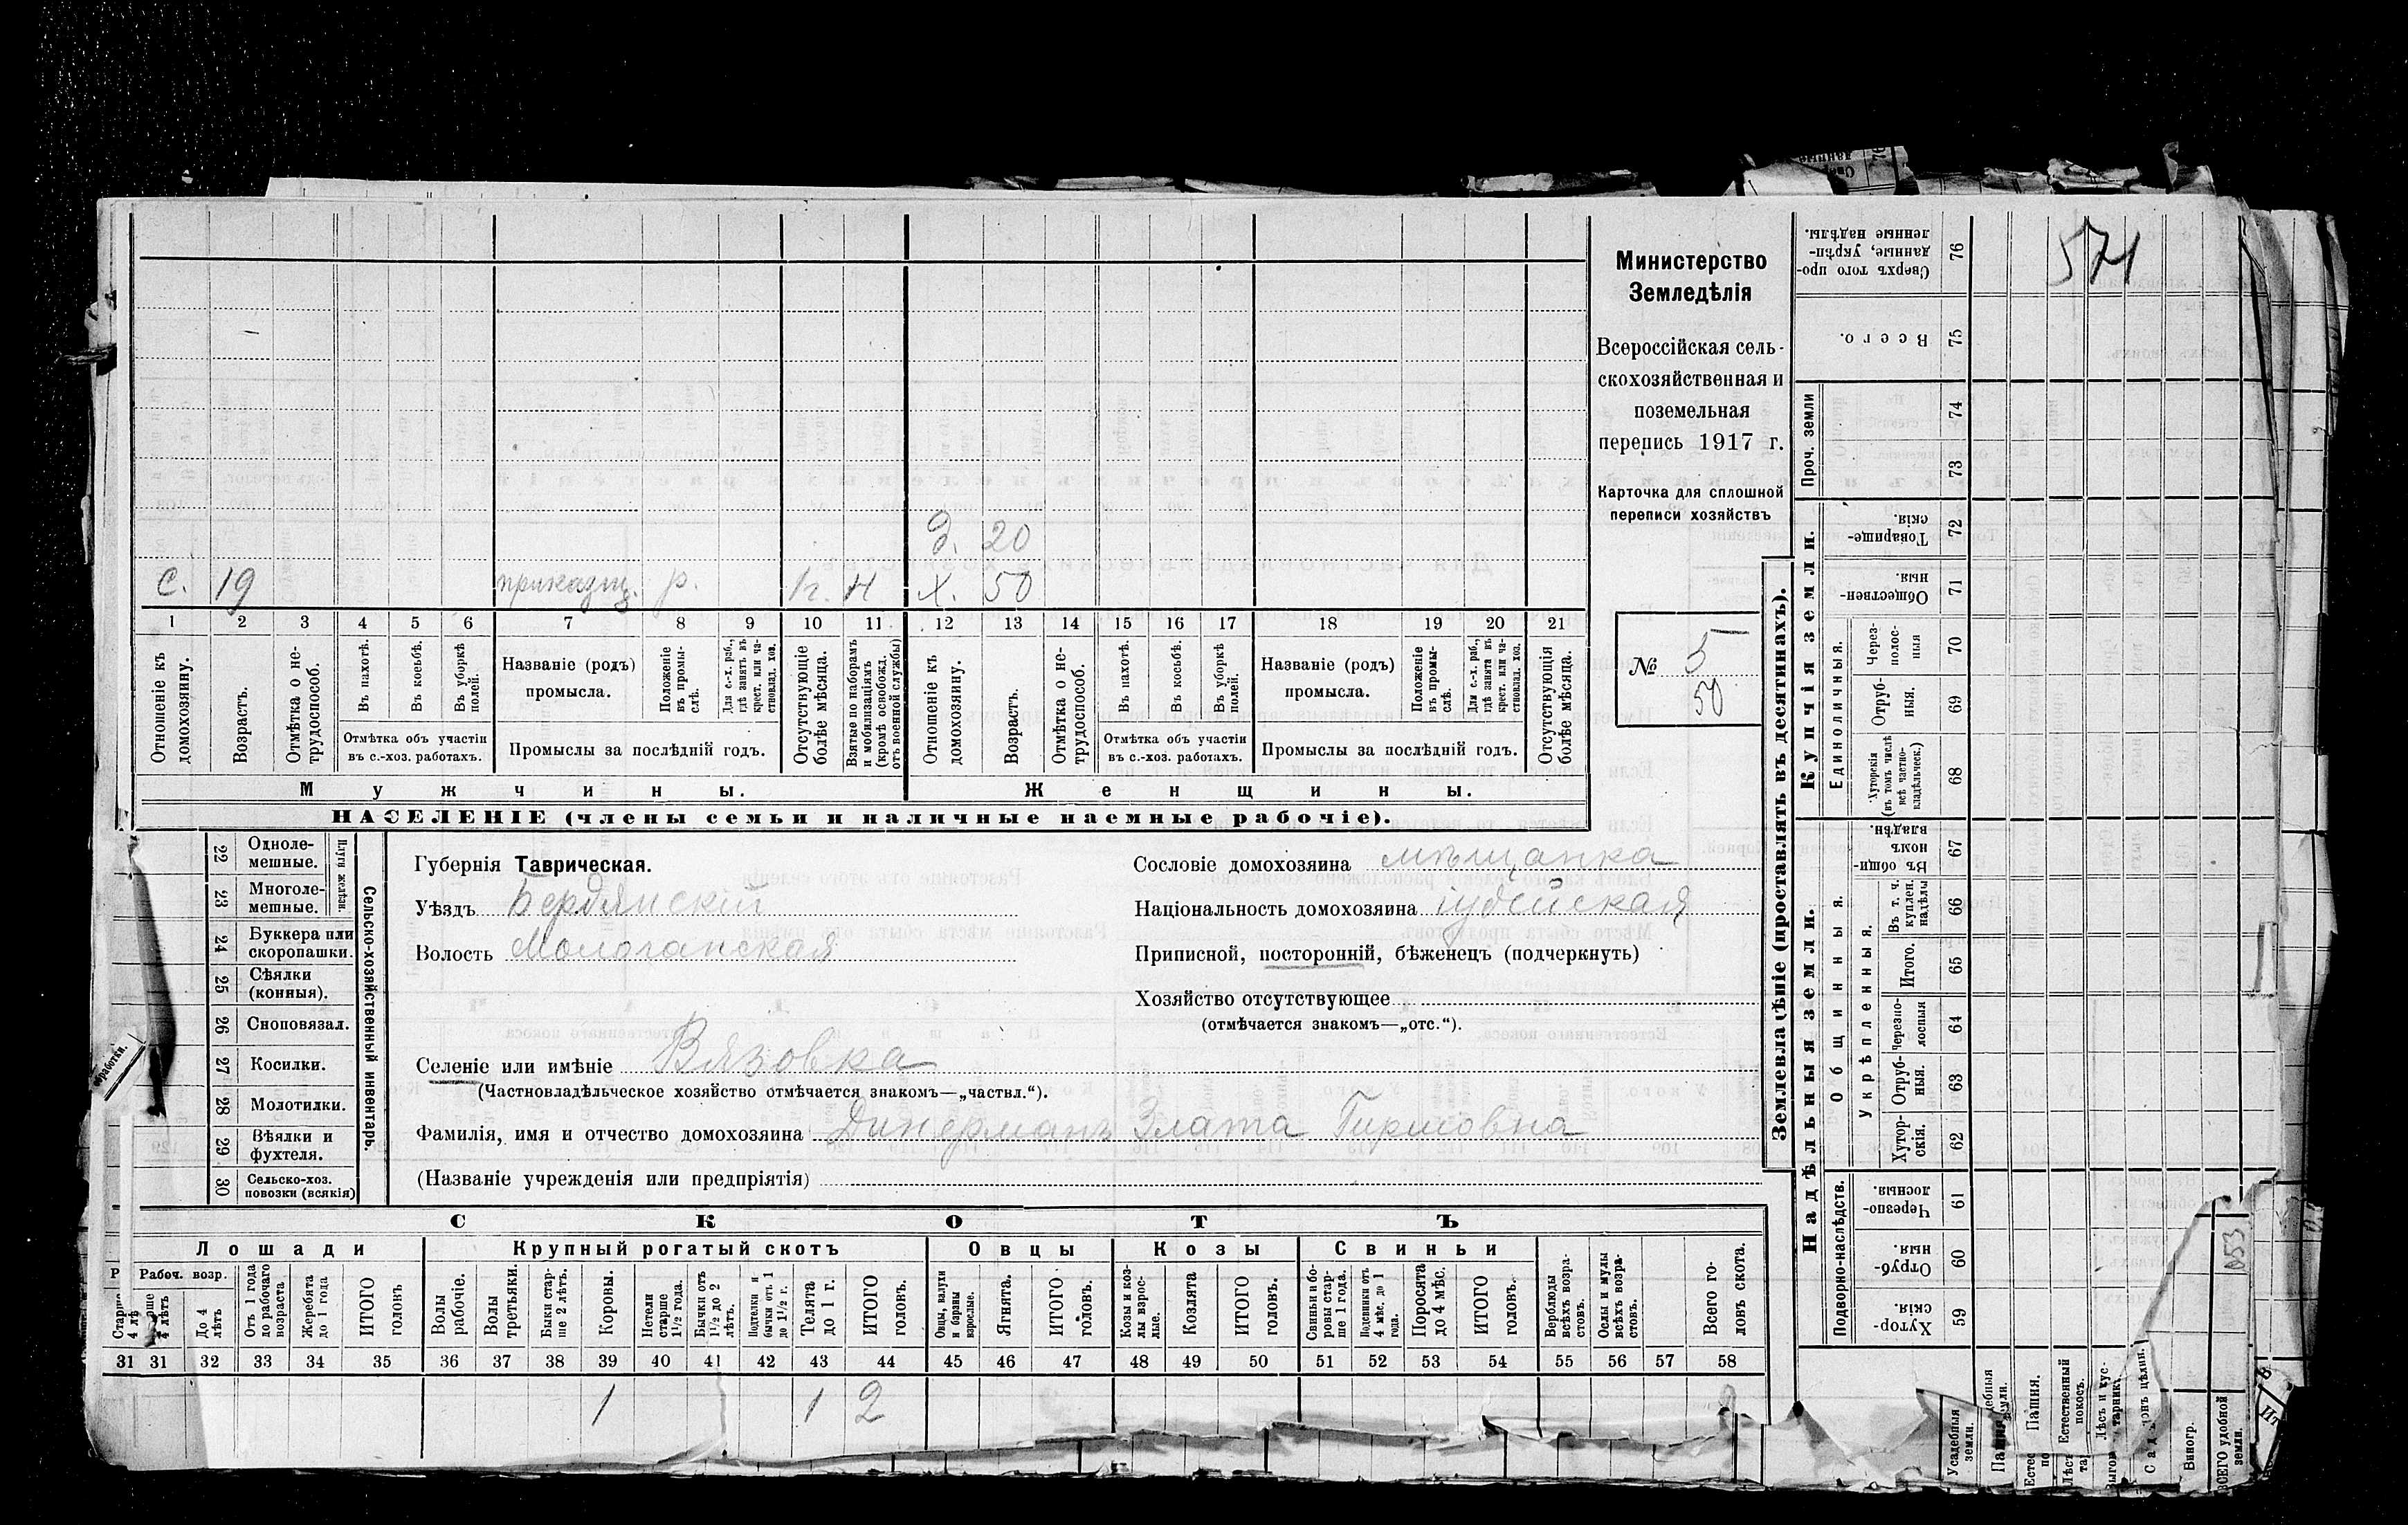 571
Министерство
Земледѣлія
Всероссійская сель-
скохозяйственная и
поземельная
перепись 1917 г.
Карточка для сплошной
переписи хозяйствъ
№ 5
50
Д. 20
С. 19 приказщ. р. Н Х. 50
1 2 3 4 5 6 7 8 9 10 11 12 13 14 15 16 17 18 19 20 21
Отношеніе къ домохозяину.
Возрастъ.
Отмѣтка о не-трудоспособ.
Въ пахотѣ.
Въ косьбѣ.
Въ уборкѣ полей.
Отмѣтка объ участіи
въ с.-хоз. работахъ.
Названіе (родъ)
промысла.
Положеніе въ промы-слѣ.
Для с.-х. раб., гдѣ занятъ въ крест. или ча-стновлад. хоз.
Промыслы за послѣдній годъ.
Отсутствующіе болѣе мѣсяца.
Взятые по наборамъ и мобилизаціямъ (кромѣ освобожд. отъ военной службы)
Отношеніе къ домохозяину.
Возрастъ.
Отмѣтка о не-трудоспособ.
Въ пахотѣ.
Въ косьбѣ.
Въ уборкѣ полей.
Отмѣтка объ участіи
въ с.-хоз. работахъ.
Названіе (родъ)
промысла.
Положеніе въ промы-слѣ.
Для с.-х. раб., гдѣ занята въ крест. или ча-стновлад. хоз.
Промыслы за послѣдній годъ.
Отсутствующія болѣе мѣсяца.
Мужчины. Женщины.
НАСЕЛЕНІЕ (члены семьи и наличные наемные рабочіе).
22 Одноле-мешные.
23 Многоле-мешные.
Плуги желѣзн.
24 Буккера или скоропашки.
25 Сѣялки (конныя).
26 Сноповязал.
27 Косилки.
28 Молотилки.
29 Вѣялки и фухтеля.
30 Сельско-хоз. повозки (всякія)
Сельско-хозяйственный инвентарь.
Губернія Таврическая.
Уѣздъ Бердянскій
Волость Мологанская
Селеніе или имѣніе Вязовка
(Частновладѣльческое хозяйство отмѣчается знакомъ—„частвл.“).
Фамилія, имя и отчество домохозяина Динерманъ Злата Гиршовна
(Названіе учрежденія или предпріятія)
Сословіе домохозяина мѣщанка
Національность домохозяина іудейская
Приписной, посторонній, бѣженецъ (подчеркнуть)
Хозяйство отсутствующее
(отмѣчается знакомъ—„отс.“).
СКОТЪ
Лошади Крупный рогатый скотъ Овцы Козы Свиньи
Рабоч. возр.
До 4 лѣтъ
Отъ 1 года до рабочаго возраста
Жеребята до 1 года
ИТОГО головъ
Волы рабочіе.
Волы третьяки.
Быки стар-ше 2 лѣтъ.
Коровы.
Нетели старше 1½ года.
Бычки отъ 1½ до 2 лѣтъ.
Подтелки и бычки отъ 1 до 1½ г.
Телята до 1 г.
ИТОГО головъ.
Овцы, валухи и бараны взрослые.
Ягнята.
ИТОГО головъ.
Козы и коз-лы взрос-лые.
Козлята
ИТОГО головъ.
Свиньи и бо-ровы стар-ше 1 года.
Подсвинки отъ 4 мѣс. до 1 года.
Поросята до 4 мѣс.
ИТОГО головъ.
Верблюды всѣхъ возра-стовъ.
Ослы и мулы всѣхъ возра-стовъ.
Всего го-ловъ скота.
31 31 32 33 34 35 36 37 38 39 40 41 42 43 44 45 46 47 48 49 50 51 52 53 54 55 56 57 58
1 1 2 2
Землевладѣніе (проставлять въ десятинахъ).
Надѣльныя земли. Купчія земли.
Подворно-наслѣдств.
Общинныя.
Укрѣпленныя.
Единоличныя.
Проч. земли
59 Хутор-скія.
60 Отруб-ныя.
61 Черезпо-лосныя.
62 Хутор-скія.
63 Отруб-ныя.
64 Черезпо-лосныя
65 Итого.
66 Въ т. ч. куплен. надѣлы
67 Въ общи-номъ владѣн.
68 Хуторскія (въ томъ числѣ всѣ частно-владѣльческ.)
69 Отруб-ныя.
70 Через-полос-ныя
71 Обществен-ныя.
72 Товарище-скія.
73
74
75 Всего.
76 Сверхъ того про-данные, укрѣп-ленные надѣлы.
Усадебныя земли.
Пашня.
Естественный покосъ.
Виногр.
ВСЕГО удобной земли.